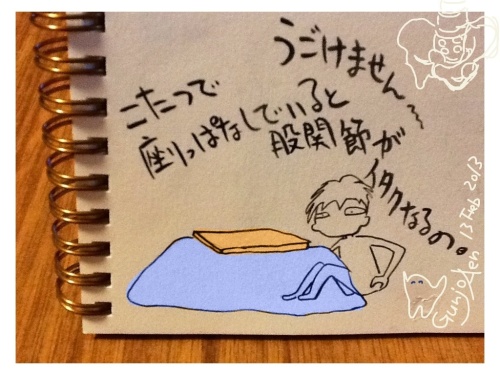 うごけません〜
こたつで
座りっぱなしでいると
股関節が
イタくなるの。
13 Feb 2013